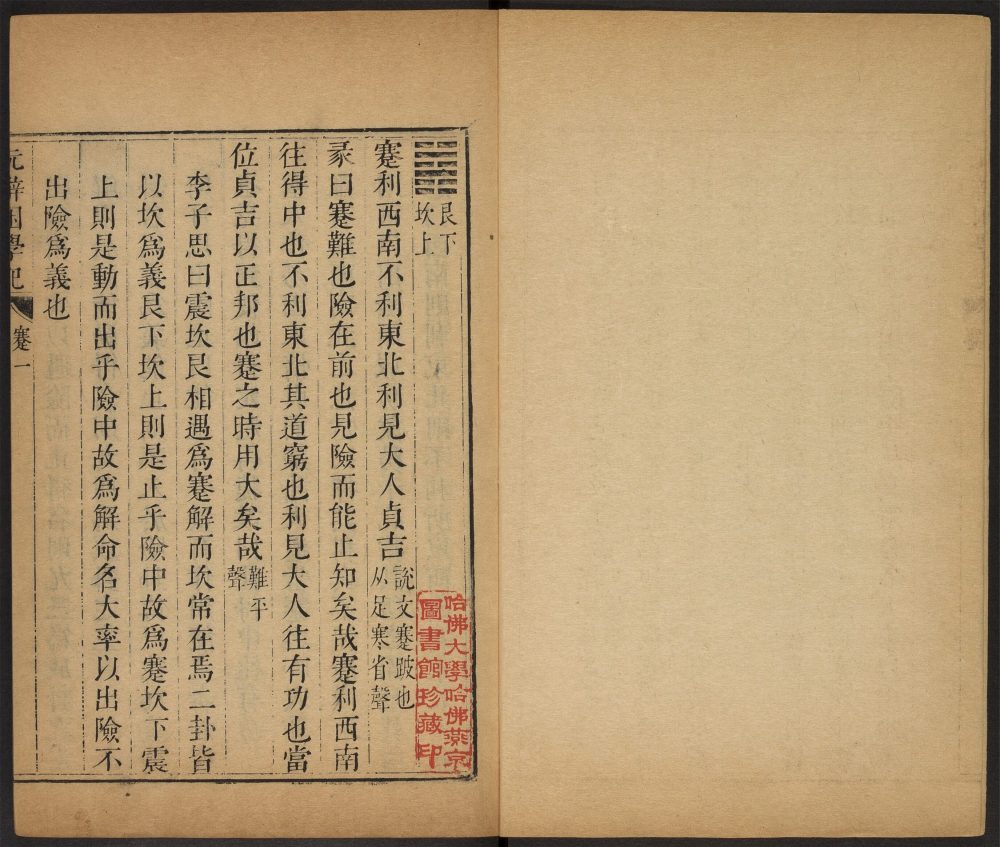 ䷦ 艮下
坎上
蹇利西南不利東北利見大人貞吉 說文蹇跛也
从足寒省聲
彖曰蹇難也險在前也見險而能止知矣哉蹇利西南
往得中也不利東北其道窮也利見大人往有功也當
位貞吉以正邦也蹇之時用大矣哉 難平
聲
李子思曰震坎艮相遇爲蹇解而坎常在焉二卦皆
以坎爲義艮下坎上則是止乎險中故爲蹇坎下震
上則是動而出乎險中故爲解命名大率以出險不
出險爲義也
學記 蹇 一
哈佛大學哈佛燕京
圖書館珍藏印